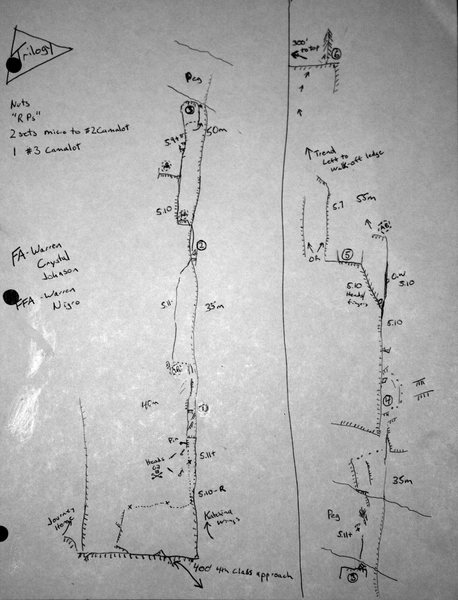 Trilogy
Nuts
"RPs"
2 sets micro to #2 Camalot
1 #3 Camalot
FA - Warren
Crystal
Johnson
FFA - Warren
Nigro
Peg
③
50m
5.9+
5.10
②
5.11-
35m
45m
①
Pin
Heads
5.11+
5.10-R
Journey
Home
Katchina
wings
400' 4th class approach
300'
to top
⑥
Trend
Left to
walk-off ledge
5.7
55m
OR
⑤
5.10
5.10
Hands/
fingers
5.10
④
35m
Peg
5.11+
③